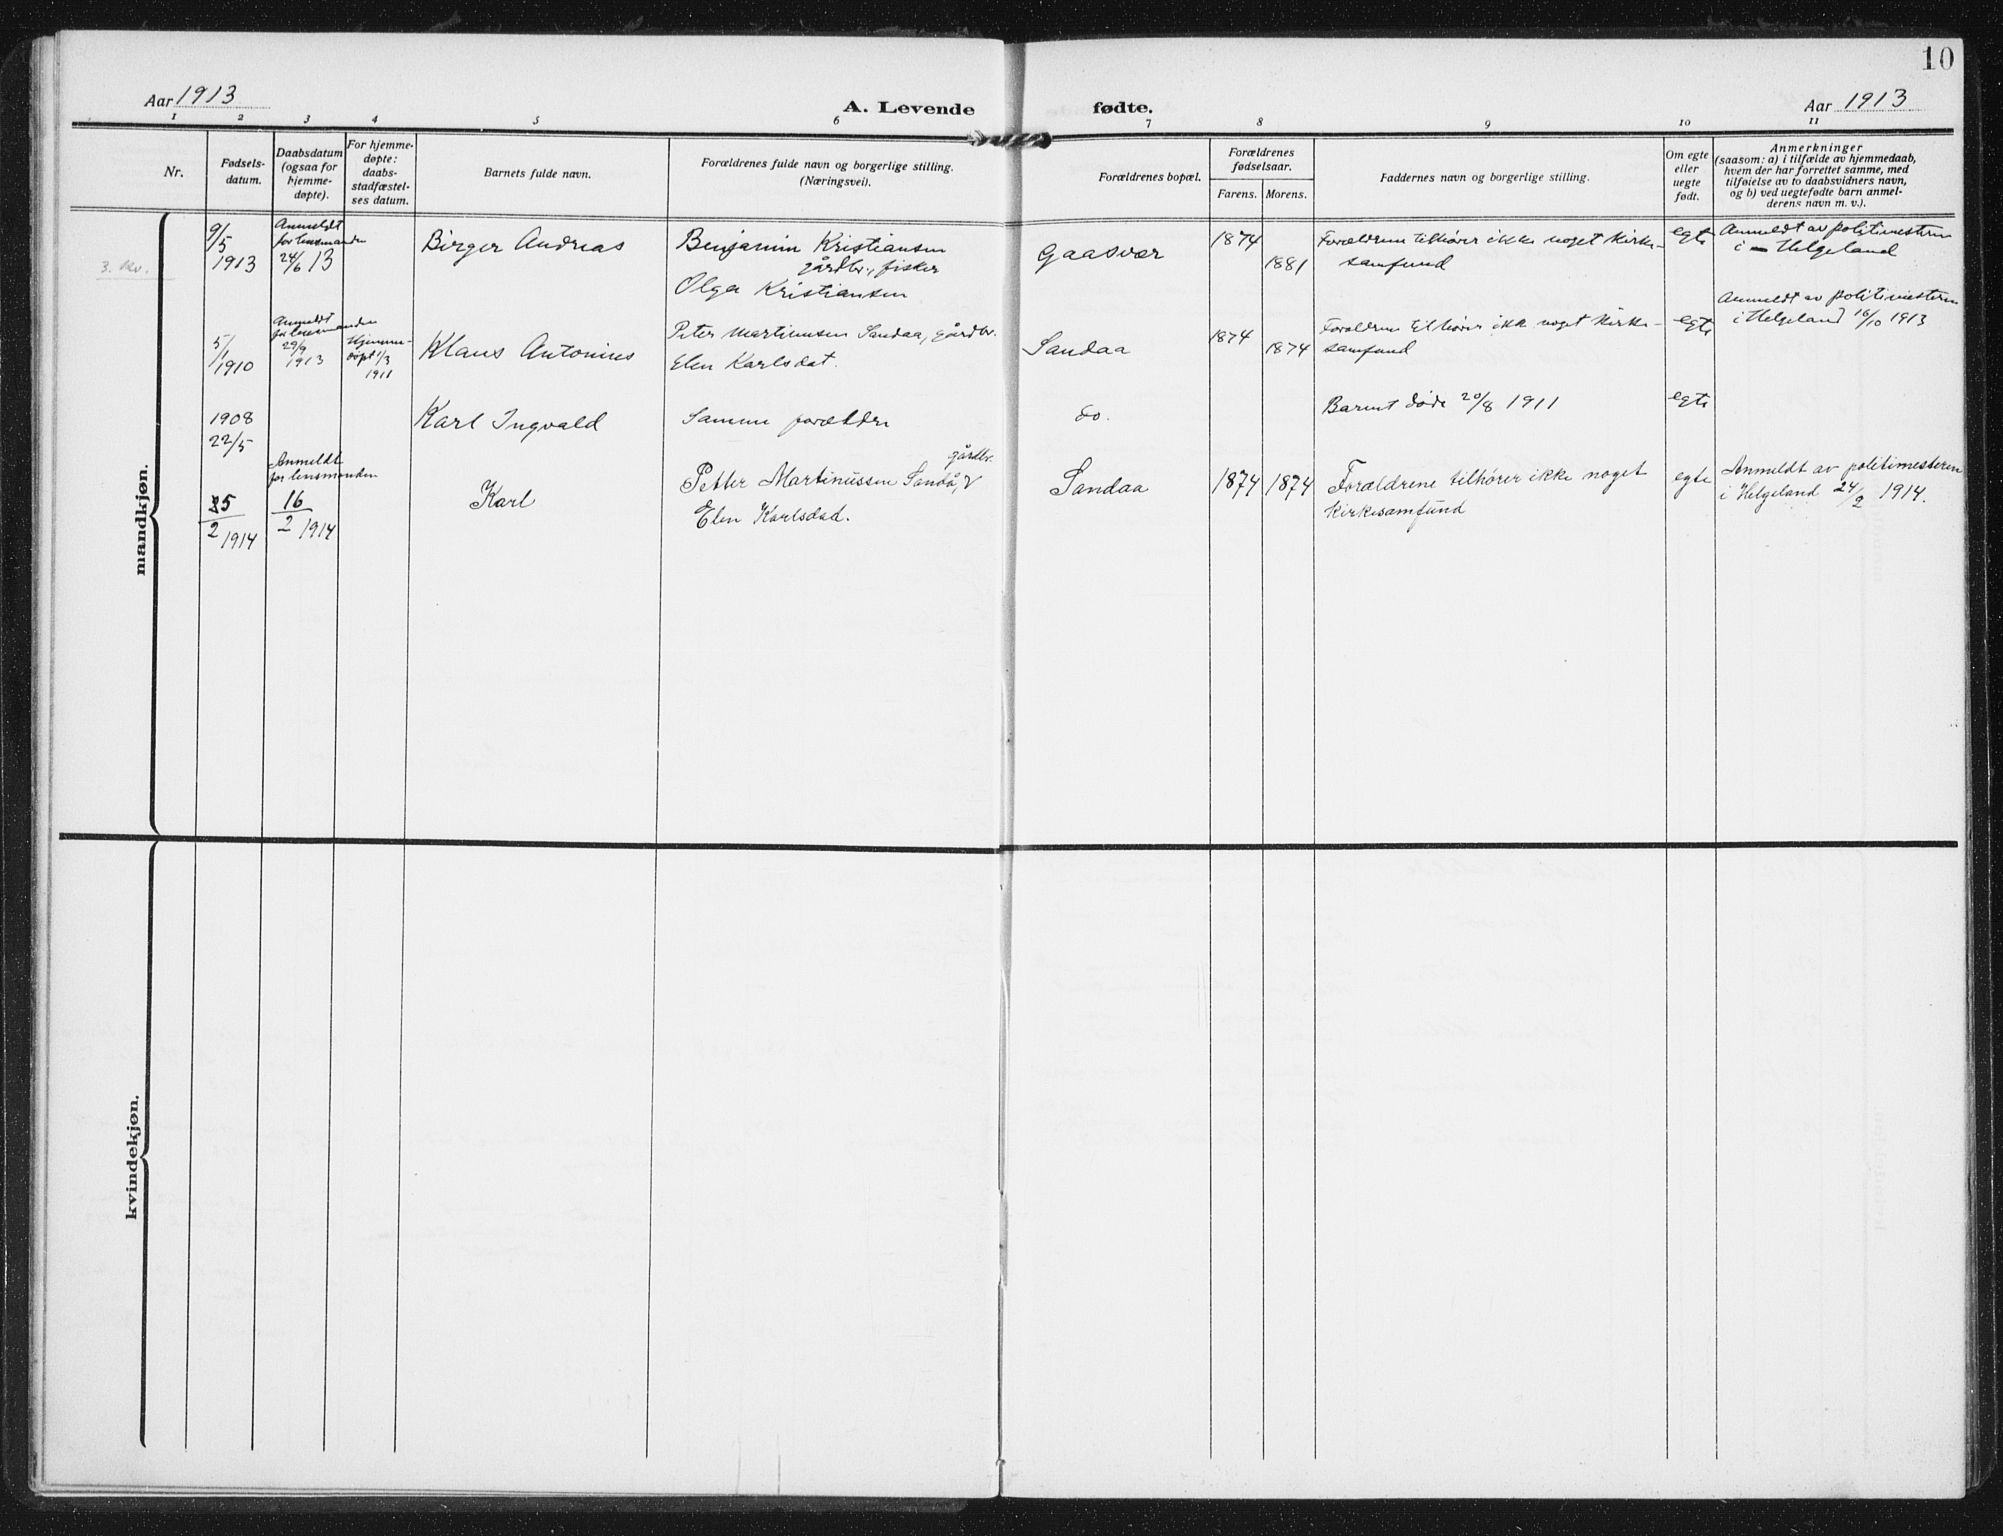 10
Aar 1913
A. Levende fødte.
Aar 1913
1 2 3 4 5 6 7 8 9 10 11
Nr.
Fødsels-
datum.
Daabsdatum
(ogsaa for
hjemme-
døpte).
For hjemme-
døpte:
daabs-
stadfæstel-
ses datum.
Barnets fulde navn.
Forældrenes fulde navn og borgerlige stilling.
(Næringsvei).
Forældrenes bopæl.
Forældrenes
fødselsaar.
Farens. Morens.
Faddernes navn og borgerlige stilling.
Om egte
eller
uegte
født.
Anmerkninger
(saasom: a) i tilfælde av hjemmedaab,
hvem der har forrettet samme, med
tilføielse av to daabsvidners navn,
og b) ved uegtefødte barn anmel-
derens navn m. v.).
mandkjøn.
3. kv.
9/5
1913
Anmeldt
for lensmanden
24/6 13
Birger Andreas
Benjamin Kristiansen
gårdbr., fisker
Olga Kristiansen
Gaasvær
1874
1881
Forældrene tilhører ikke noget kirke-
samfund
egte
Anmeldt av politimesteren
i Helgeland
5/1
1910
Anmeldt
for lensmanden
29/9
1913
Hjemme-
døpt 1/3
1911
Klaus Antonius
Peter Martinusen Sandaa, gårdbr.
Elen Karlsdat.
Sandaa
1874
1874
Forældrene tilhører ikke noget kirke-
samfund
egte
Anmeldt av politimesteren
i Helgeland 16/10 1913
1908
22/5
Karl Ingvald
Samme forældre
do.
Barnet døde 20/8 1911
egte
25/2 1914
Anmeldt
for lensmanden
16/2 1914
Karl
gårdbr.
Petter Martinussen Sandå,
Elen Karlsdad.
Sandaa
1874
1874
Forældrene tilhører ikke noget
kirkesamfund
egte
Anmeldt av politimesteren
i Helgeland 24/2 1914.
kvindekjøn.